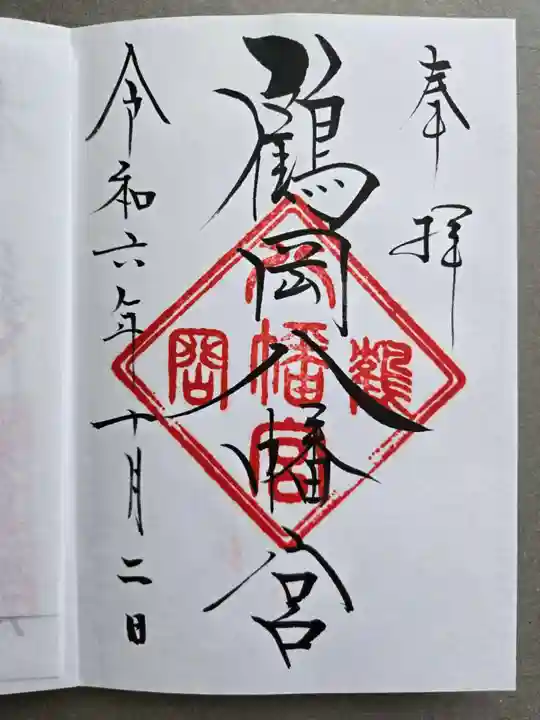 奉拝
鶴岡八幡宮
鶴岡
八幡宮
令和六年十月二日